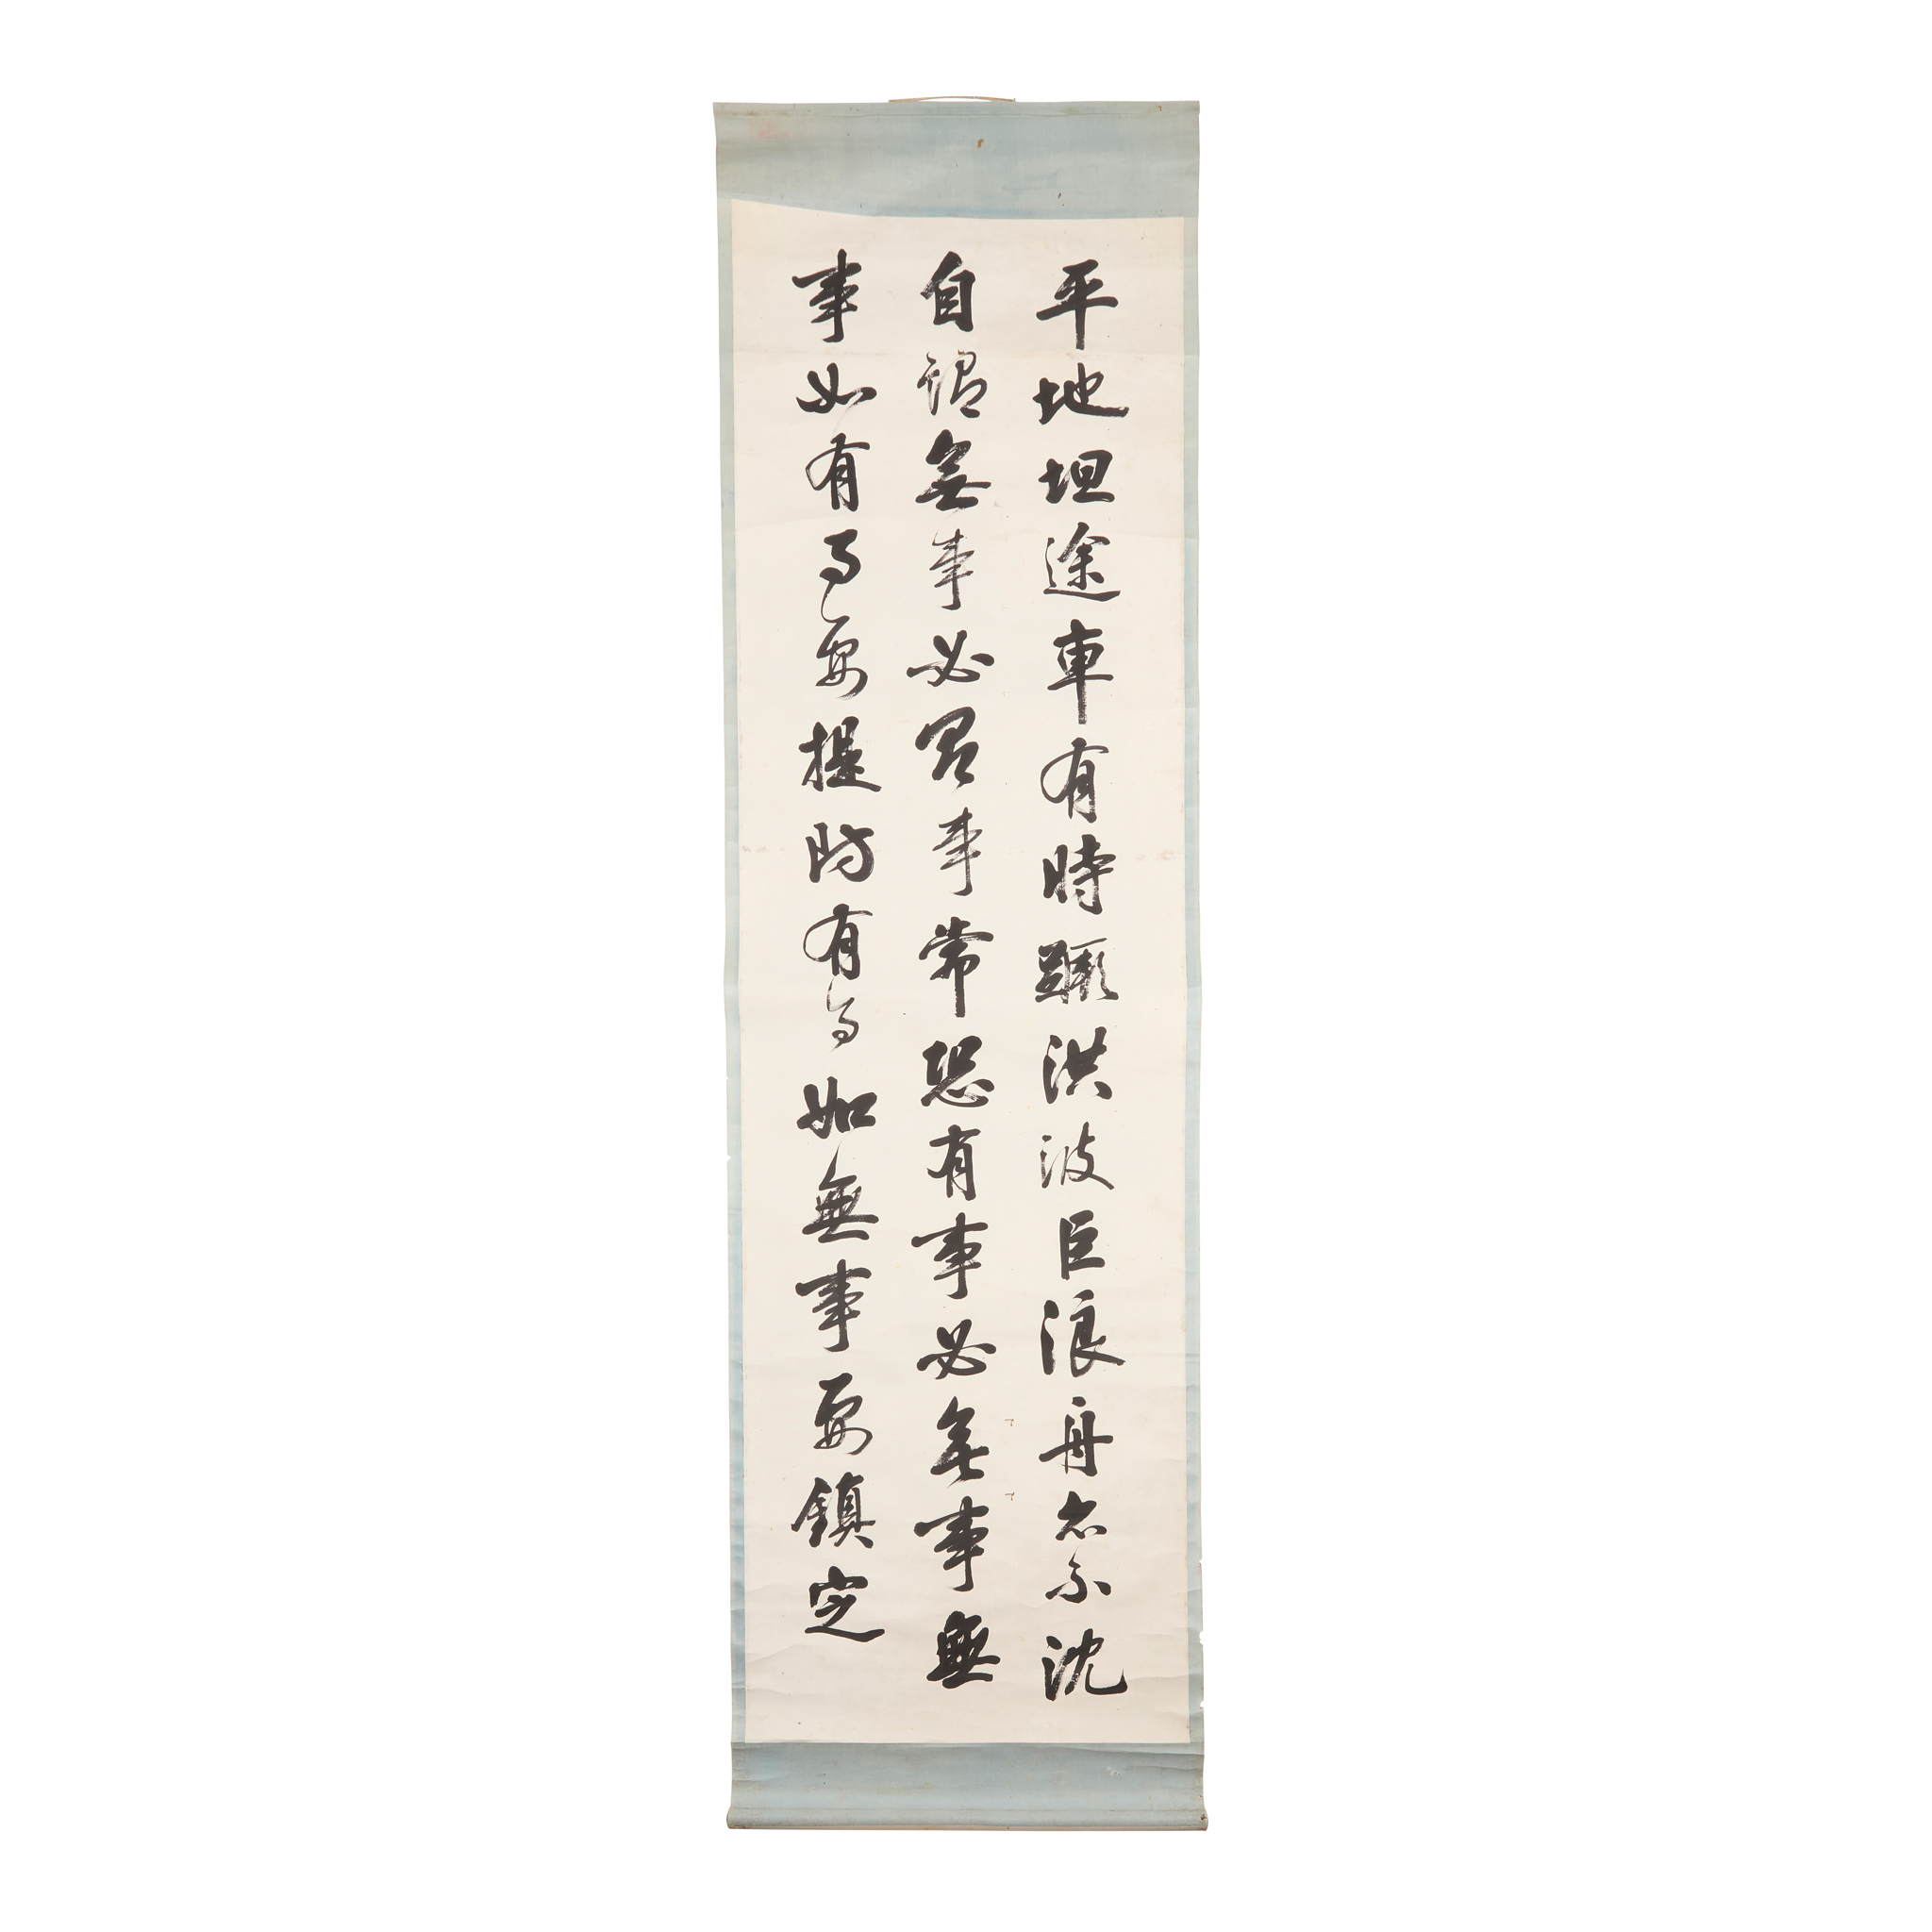 平地坦途車有時蹶洪波巨浪舟亦不沈
自謂無事必事常恐有事必無事無
事如有事要提防有事如無事要鎮定